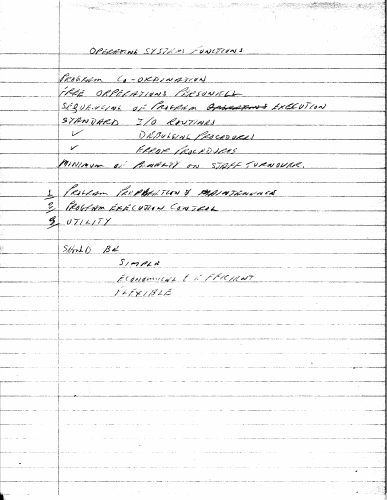 OPERATING SYSTEM FUNCTIONS
PROGRAM CO-ORDINATION
FREE OPERATIONS PERSONNEL
SEQUENCING OF PROGRAM EXECUTION
STANDARD I/O ROUTINES
✓ DEBUGGING PROCEDURES
✓ ERROR PROCEDURES
MINIMUM OF PENALTY ON STAFF TURNOVER.
1 PROGRAM PREPARATION & MAINTENANCE
2 PROGRAM EXECUTION CONTROL
3 UTILITY
SHOULD BE
SIMPLE
ECONOMICAL & EFFICIENT
FLEXIBLE